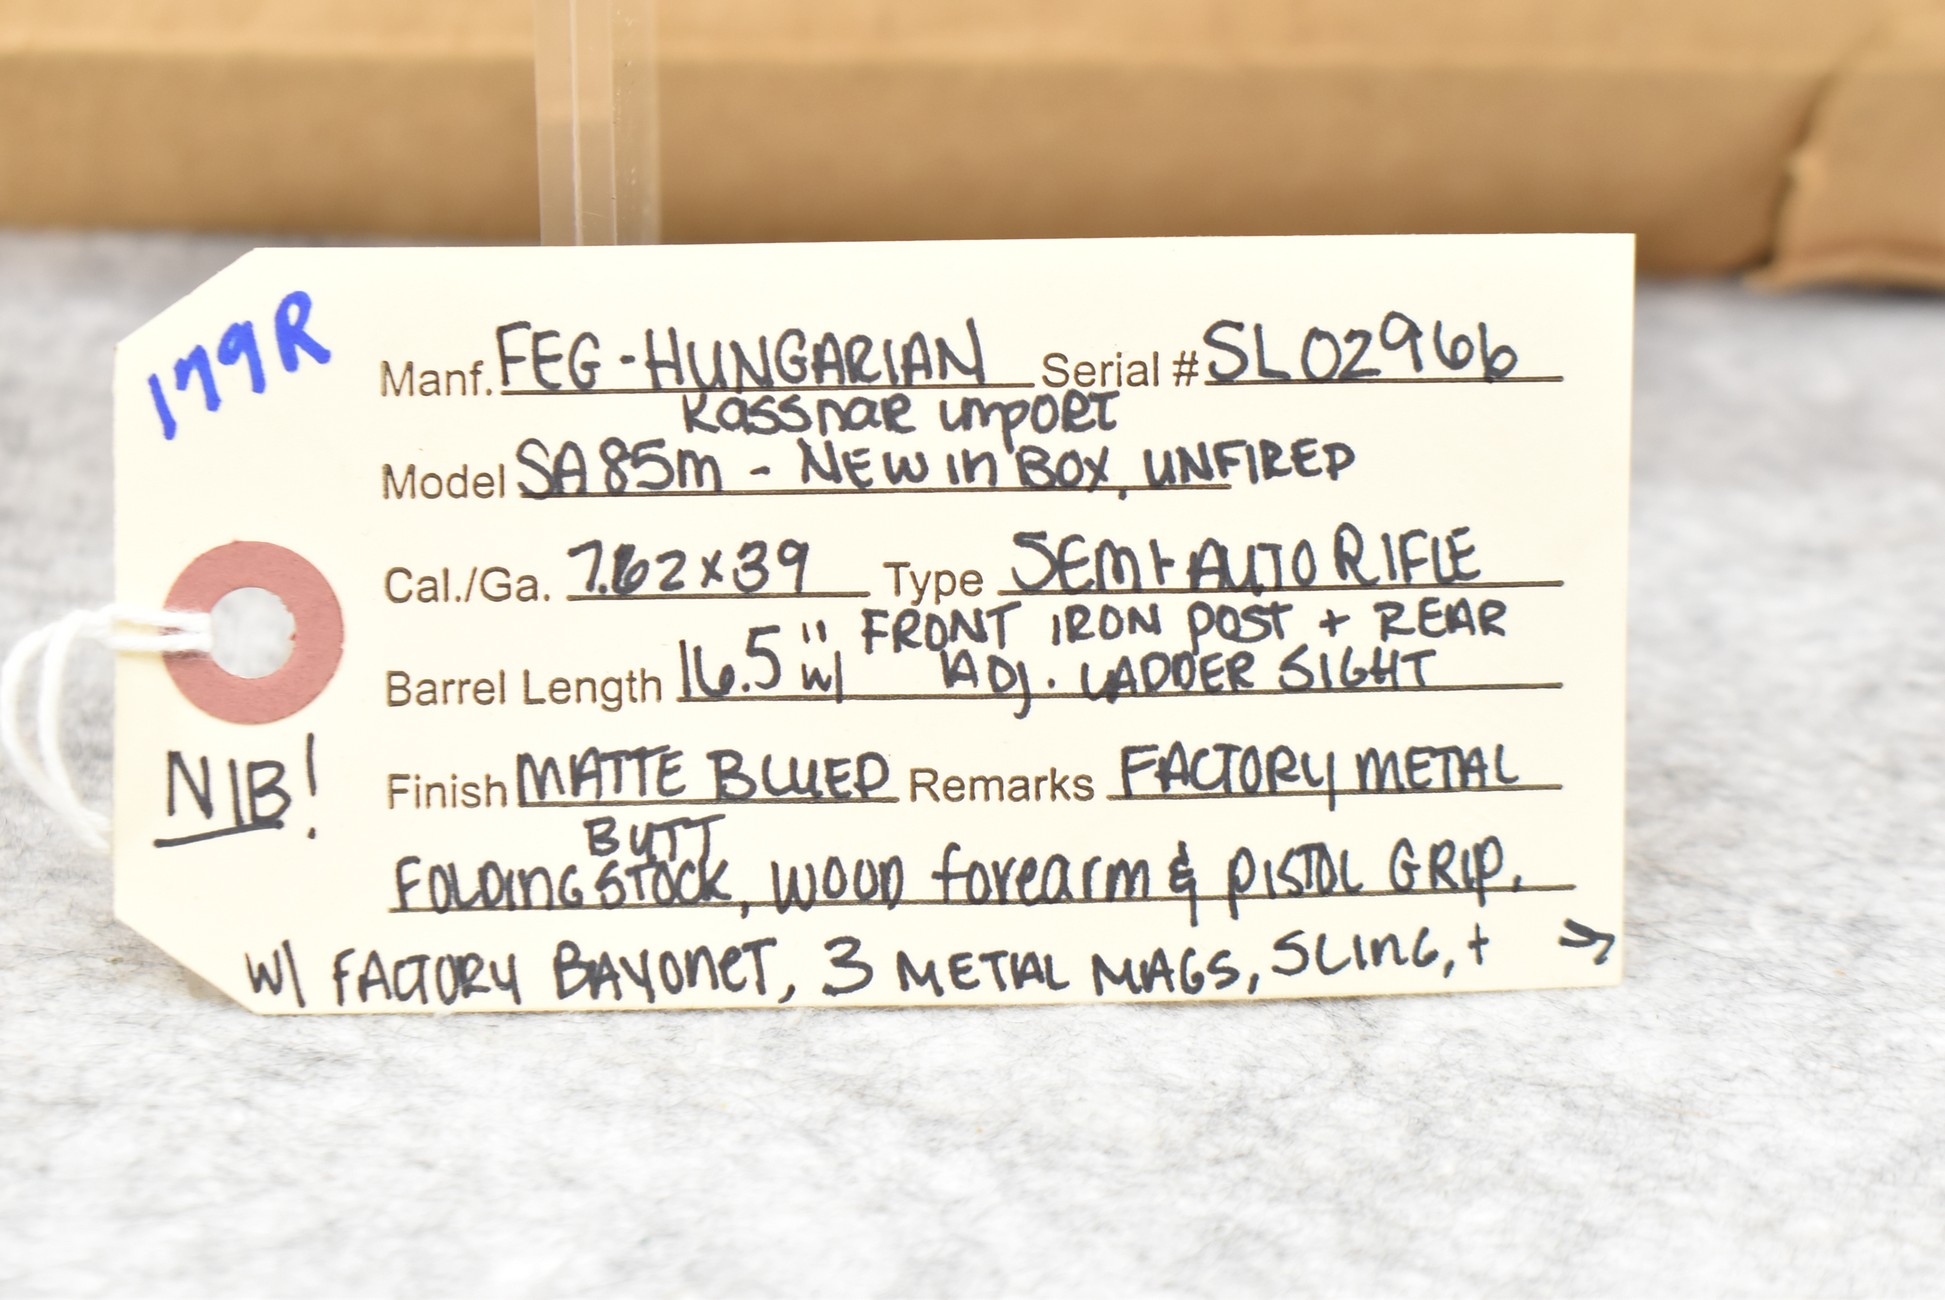 179R
Manf. FEG-HUNGARIAN Serial # SL02966
Kassnar import
Model SA85m - NEW in BOX, UNFIRED
Cal./Ga. 7.62x39 Type SEMI AUTO RIFLE
FRONT IRON POST + REAR
Barrel Length 16.5" w/ ADJ. LADDER SIGHT
NIB!
Finish MATTE BLUED Remarks FACTORY METAL
BUTT
FOLDING STOCK, WOOD forearm & PISTOL GRIP,
W/ FACTORY BAYONET, 3 METAL MAGS, SLING, + →